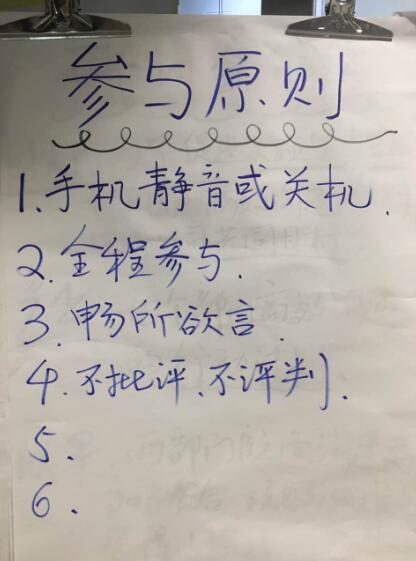 参与原则
1.手机静音或关机.
2.全程参与.
3.畅所欲言.
4.不批评、不评判.
5.
6.